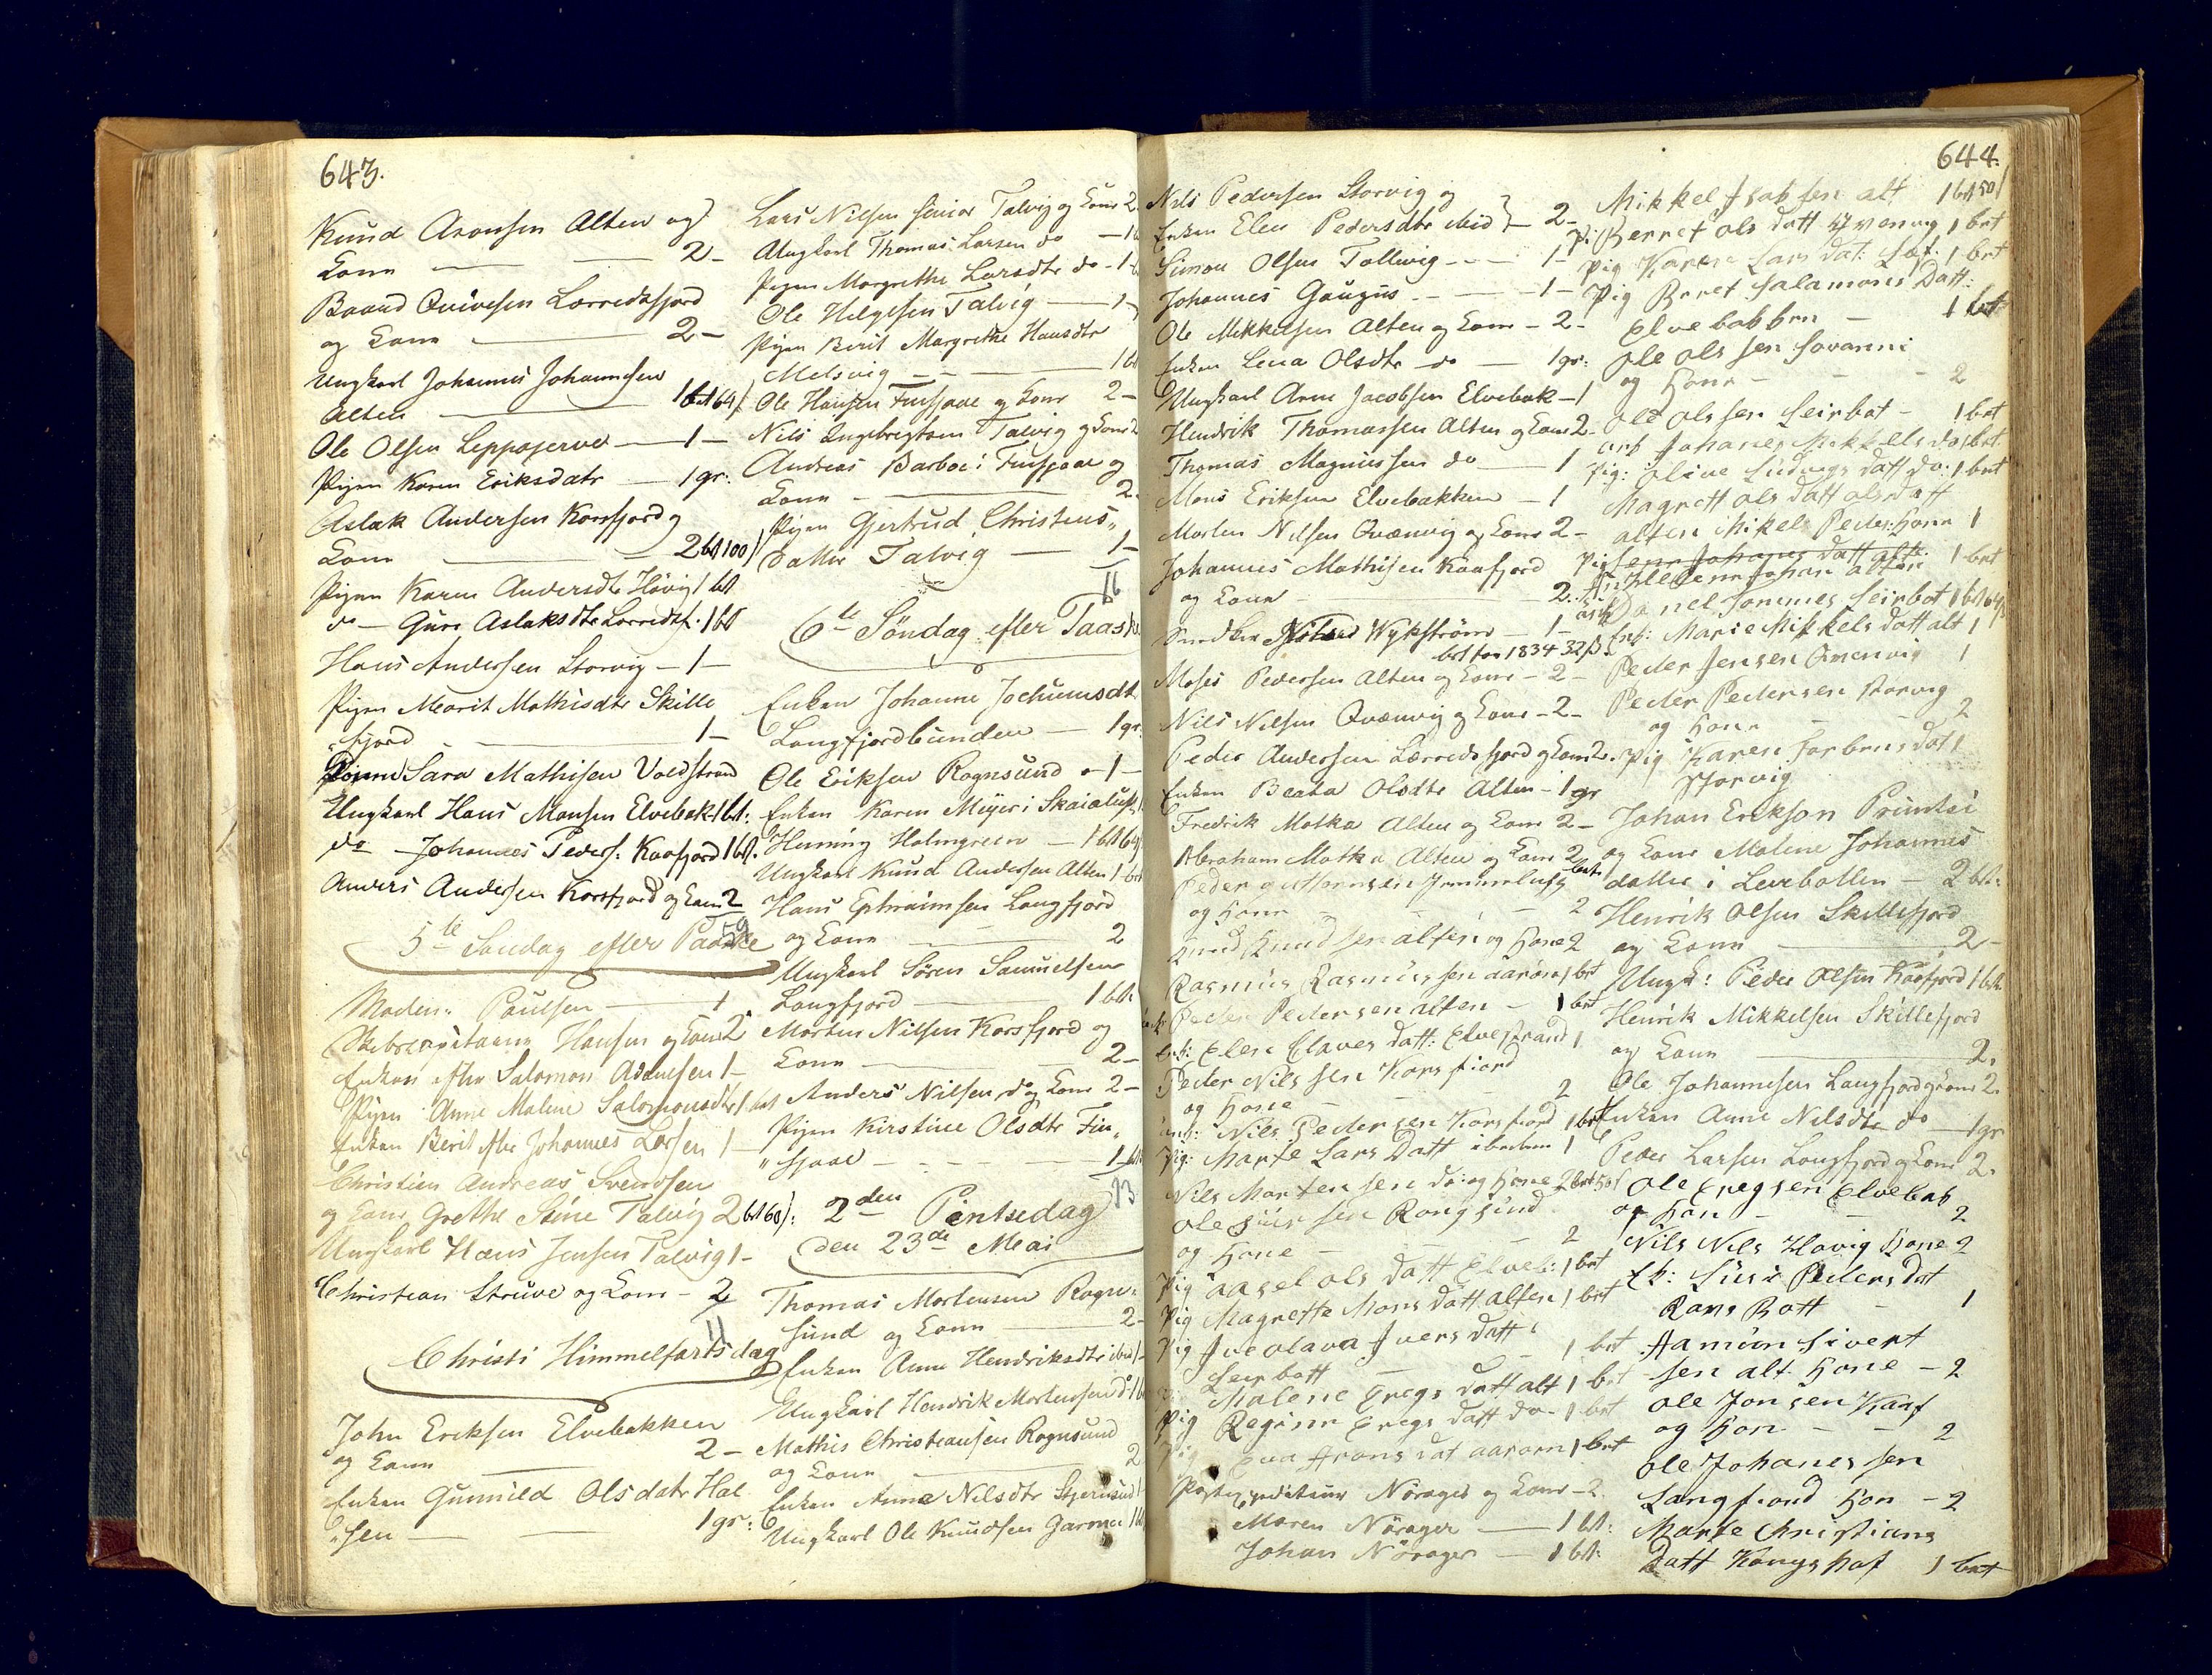 643.
Knud Aronsen Alten og
Kone 2 -
Baard Qvivesen Lerredsfjord
og Kone 2 -
Ungkarl Johannes Johannesen
Alten 1 bet 64 /
Ole Olsen Leppejerve - 1 -
Pigen Karen Eriksdatr - 1 gr:
Aslak Andersen Korsfjord og
Kone 2 bet 100 /
Pigen Karen Andersdtr Høvig 1 bet
do - Guro Aslaksdtr Lerredsf. 1 bet
Hans Andersen Storvig - 1 -
Pigen Marit Mathisdtr Skille
"fjord 1 -
Sara Mathisen Voldstrand
Ungkarl Hans Monsen Elvebak 1 bet:
do - Johannes Peders: Kaafjord 1 bet.
Anders Andersen Korsfjord og Kone 2
59
5te Søndag efter Paaske
Madm: Paulsen 1
Skibscapitaine Hansen og Kone 2
Enken efter Salomon Adamsen 1 -
Pigen Anne Malene Salomonsdtr 1 bet
Enken Berit efter Johannes Larsen 1 -
Christian Andreas Svendsen
og Kone Grethe Stine Talvig 2 bet 60 /:
Ungkarl Hans Jensen Talvig 1 -
Christian Struve og Kone - 2
11
Christi Himmelfartsdag
John Eriksen Elvebakken
og Kone 2 -
Enken Gunnild Olsdatr Hal
"sen 1 gr:
Lars Nilsen senior Talvig og Kone 2.
Ungkarl Thomas Larsen do - 1
Pigen Margrethe Larsdtr do - 1
Ole Helgesen Talvig - 1 -
Pigen Berit Margrethe Hansdtr
Melsvig 1 bt
Ole Hansen Finsjaae og Kone 2 -
Nils Ingebrigtsen Talvig og Kone 2
Andreas Barboe i Finsjaae og
Kone 2.
Pigen Gjertrud Christens"
datter Talvig 1 -
16
6te Søndag efter Paaske
Enken Johanne Jochumsdtr
Langfjordbunden - 1 gr.
Ole Eriksen Rognsund - 1 -
Enken Karen Meyer i Skaialuft
Henning Holmgreen - 1 bet 64
Ungkarl Knud Andersen Alten 1 - bet
Hans Ephraimsen Langfjord
og Kone 2
Ungkarl Søren Samuelsen
Langfjord 1 bet:
Morten Nilsen Korsfjord og
Kone 2 -
Anders Nilsen do og Kone 2 -
Pigen Kirstine Olsdtr Fin"
"sjaae 1 bt
13
2den Pintsedag
den 23de Mai
Thomas Mortensen Rogn"
sund og Kone 2 -
Enken Anne Hendriksdtr ibid 1 -
Ungkarl Hendrik Mortensen do 1 b
Mathis Christiansen Rognsund
og Kone 2
Enken Anna Nilsdtr Stjernsund 1
Ungkarl Ole Knudsen Garmen 1 bt
644.
Nils Pedersen Storvig og
Enken Elen Pedersdtr ibid } - 2 -
Simon Olsen Tallevig - 1 -
Johannes Gaugus - 1 -
Ole Mikkelsen Alten og Kone - 2 -
Enken Lena Olsdtr do - 1 gr:
Ungkarl Arne Jacobsen Elvebak - 1
Hendrik Thomassen Alten og Kone 2
Thomas Magnussen do - 1
Mons Eriksen Elvebakken - 1
Morten Nilsen Qvænvig og Kone 2 -
Johannes Mathisen Kaafjord
og Kone 2.
Wykstrøm - 1 -
bet for 1834 32 ß
Moses Pedersen Alten og Kone - 2 -
Nils Nilsen Qvænvig og Kone - 2 -
Peder Andersen Lerredsfjord og Kone 2.
Enken Beata Olsdtr Alten - 1 gr
Fredrik Matka Alten og Kone 2 -
Abraham Matka Alten og Kone 2 bet
Peder guttormsen Jemmeluft
og Kone 2
Knud Knudsen alten og Kone 2
Rasmus Rasmussen aarøen 1 bet
Peder Pedersen alten - 1 bet
Enk: Elen Claves datt: Elvestrand 1
Peder Nilssen Korsfiord
og Kone 2
unk: Nils Pedersen Korsfiord 1 bet
Pig: Marte Lars Datt ibidem 1
Nils Martensen do: og Kone 2 bet 50 /
Ole Siursen Rongsund
og Kone 2
Pig aasel ols datt Elveb: 1 bet
Pig Magrette Mons datt alten 1 bet
Pig Ive olava Ivers datt
Leirbott 1 bet
Malene Eregs datt alt 1 bet
Pig Reginn Eregs datt do - 1 bet
Pig Eva Arons dat aaroen 1 bet
Postexpediteur Nørager og Kone - 2.
Maren Nørager 1 bet:
Johan Nørager 1 bet.
Mikkel Isaksen alt 1 bet 50 /
Pi: Berret ols datt Qvenvig 1 bet
Pig Karen Lars dat: Lef: 1 bet
Pig Beret Salamons Datt:
Elvebakken - 1 bet
Ole olssen Sovanni
og Kone - 2
Ole olssen Leirbot - 1 bet
unk Johanes Mikkels do 1 bet.
Pig: Oline Ludvigs datt do: 1 bet
Magrett ols datt olsdatt
alten Mikels Peder: Kone 1
Pig Lenn Johans datt alt.
Helenn Johan alten 1 bet
Danel Tommes Leirbot 1 bet 64 /
Enk: Marie Mikkels datt alt 1
Peder Jensen Qvenvig 1
Peder Pedersen Storvig
og Kone 2
Pig Karen Torbens dat 1
Storvig
Johan Erikson Prinkki
og Kone Malene Johannes
datter i Levebotten - 2 bet.
Henrik Olsen Skillefjord
og Kone 2 -
Ungk: Peder Olsen Kaafjord 1 bet.
Henrik Mikkelsen Skillefjord
og Kone 2.
Ole Johannesen Langfjord og Kone 2.
Enken Anne Nilsdtr do - 1 gr
Peder Larsen Langfjord og Kone 2.
Ole Eregsen Elvebak
og Kon 2
Nils Nils Havig Kone 2
Ek: Susi Peders dat
Rans Bott - 1
Aamun Sivert
sen alt. Kone - 2
Ole Jonsen Kaaf
og Kon - 2
Ole Johanessen
Langfiord Kon - 2
Marte Christians
Datt Kongshaf 1 bet